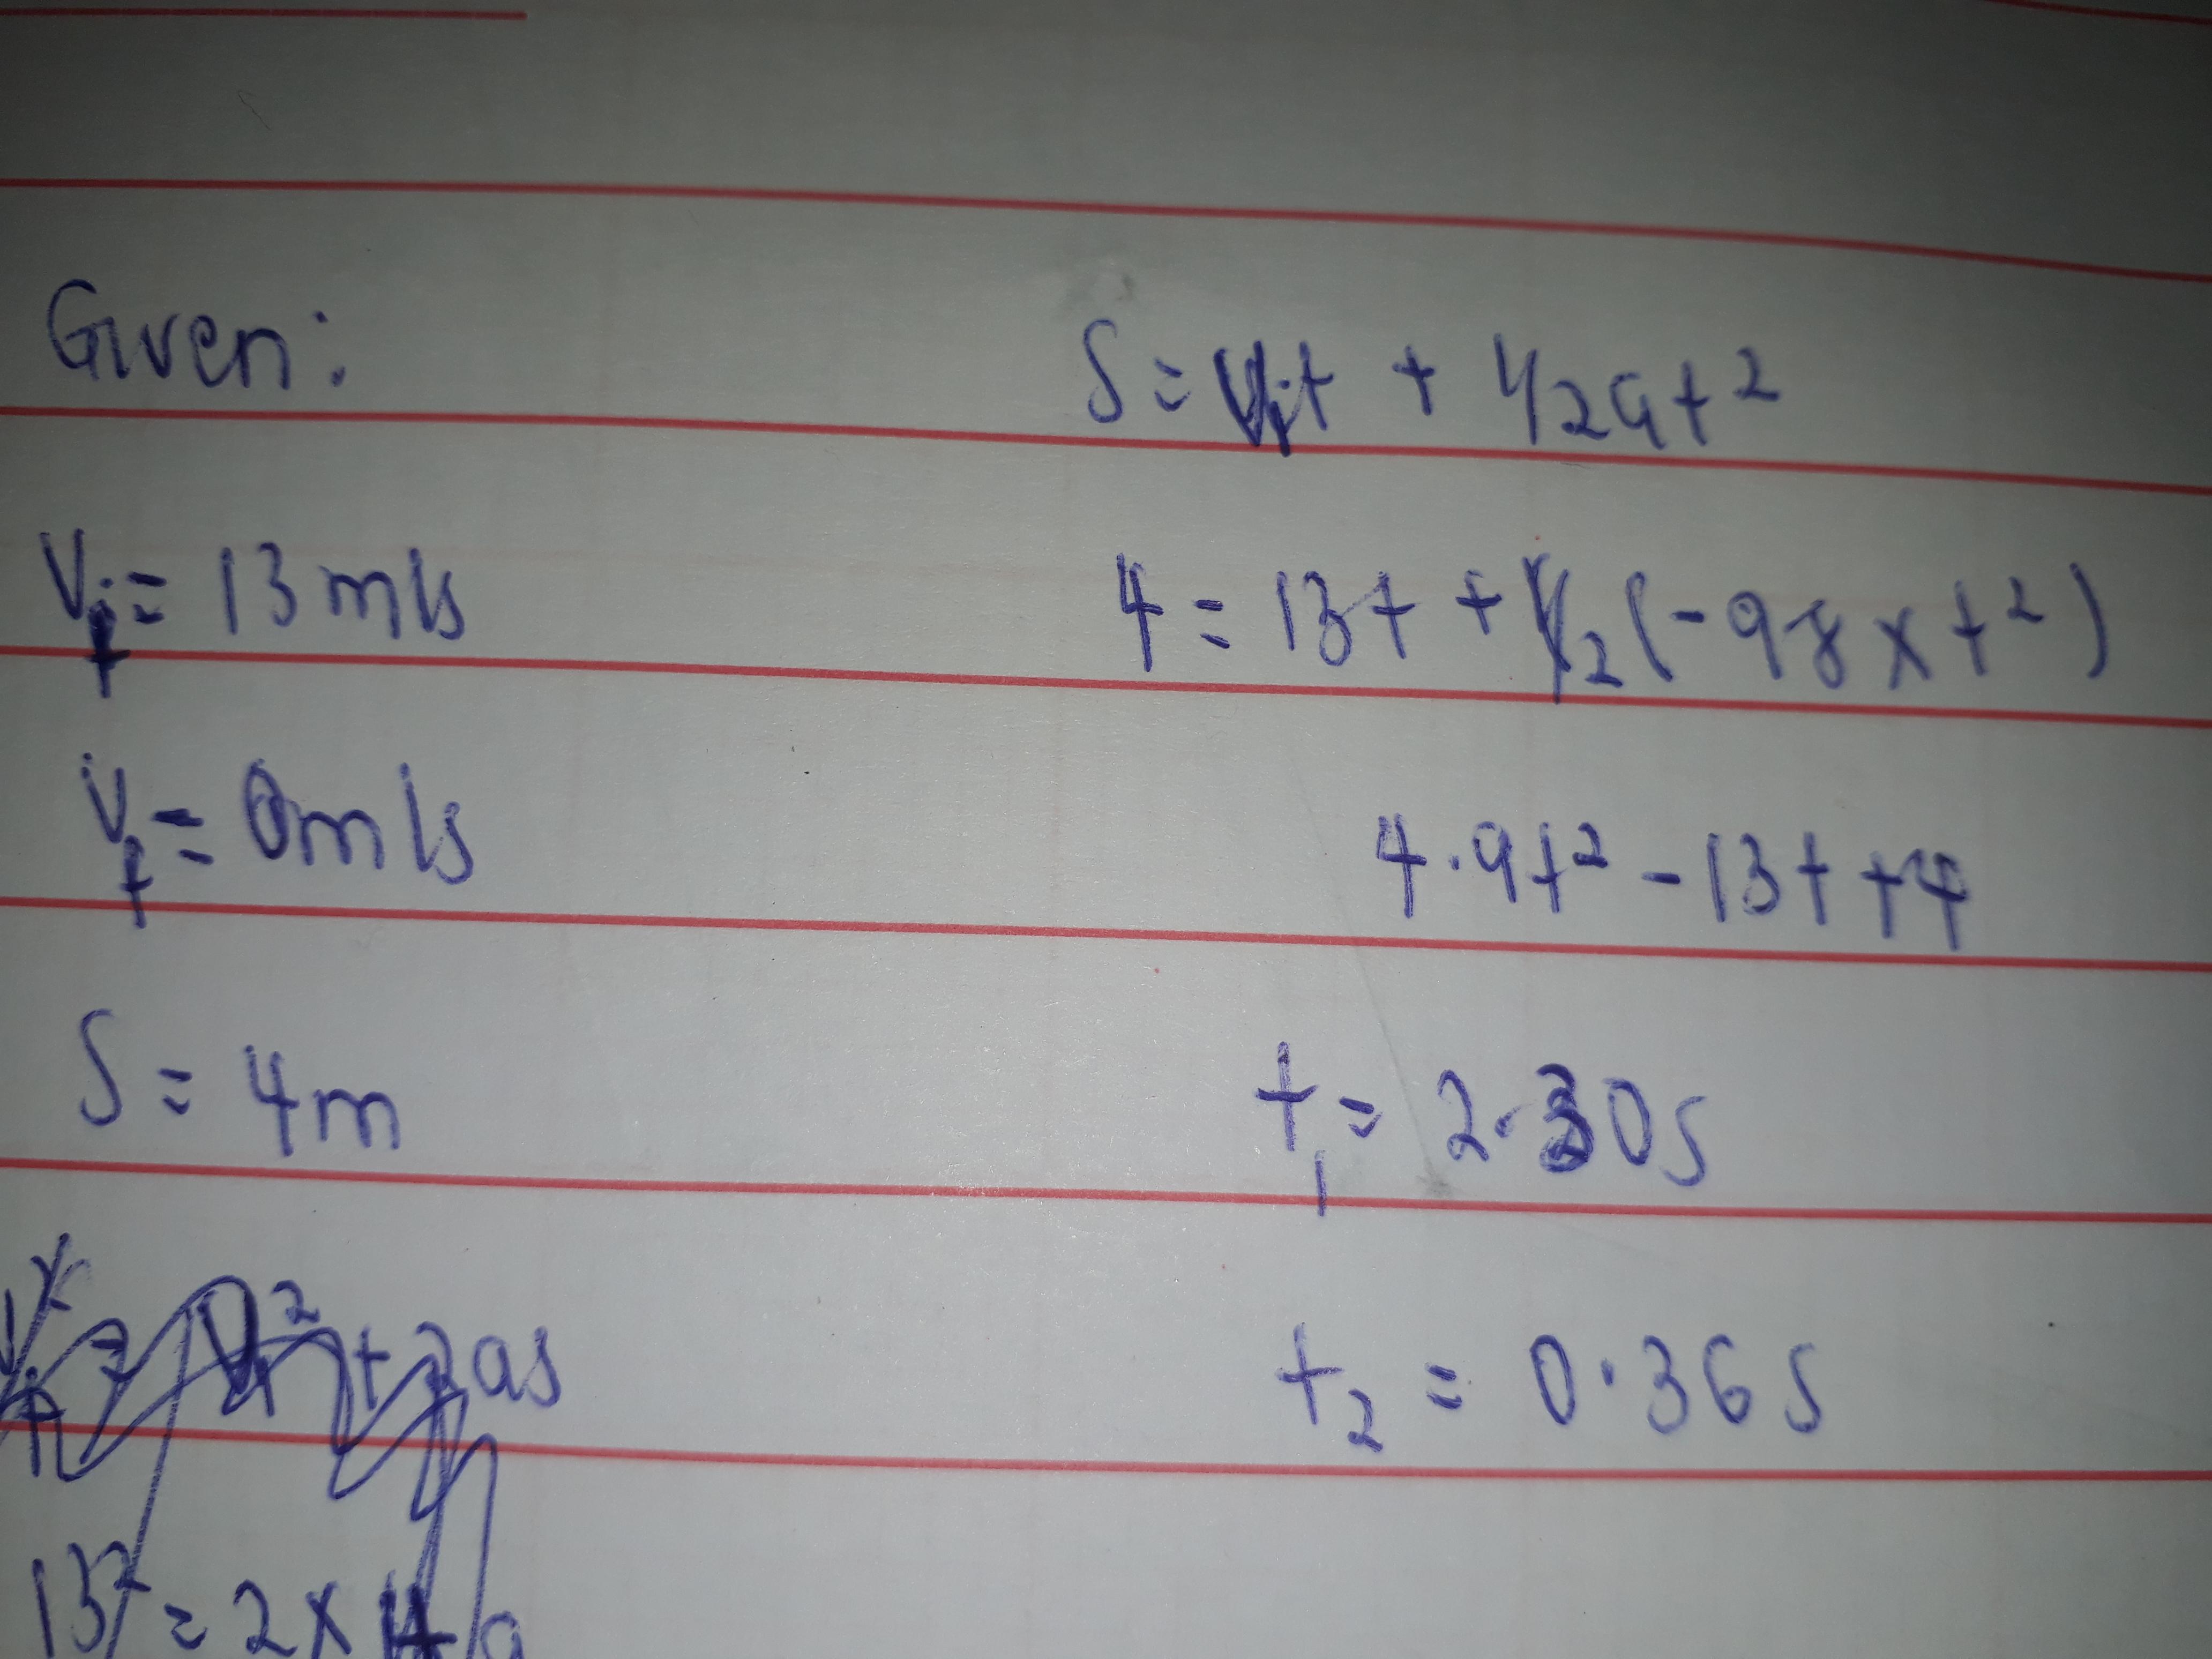 Given:
Vi = 13 m/s
Vf = 0 m/s
S = 4m
+ 2as
13² = 2 x 4
S = Vit + 1/2at²
4 = 13t + 1/2(-98 x t²)
4.9t² - 13t + 4
t1 = 2.30s
t2 = 0.36s